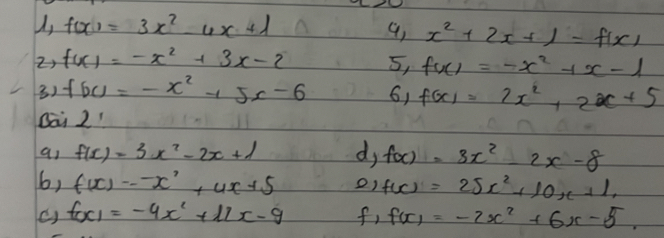 1, f(x) = 3x² - 4x + 1
4, x² + 2x + 1 = f(x)
2, f(x) = -x² + 3x - 2
5, f(x) = -x² + x - 1
3, f(x) = -x² + 5x - 6
6, f(x) = 2x² + 2x + 5
Bài 2:
a, f(x) = 3x² - 2x + 1
d, f(x) = 3x² - 2x - 8
b, f(x) = -x² + 4x + 5
e, f(x) = 25x² + 10x + 1.
c, f(x) = -4x² + 12x - 9
f, f(x) = -2x² + 6x - 5.